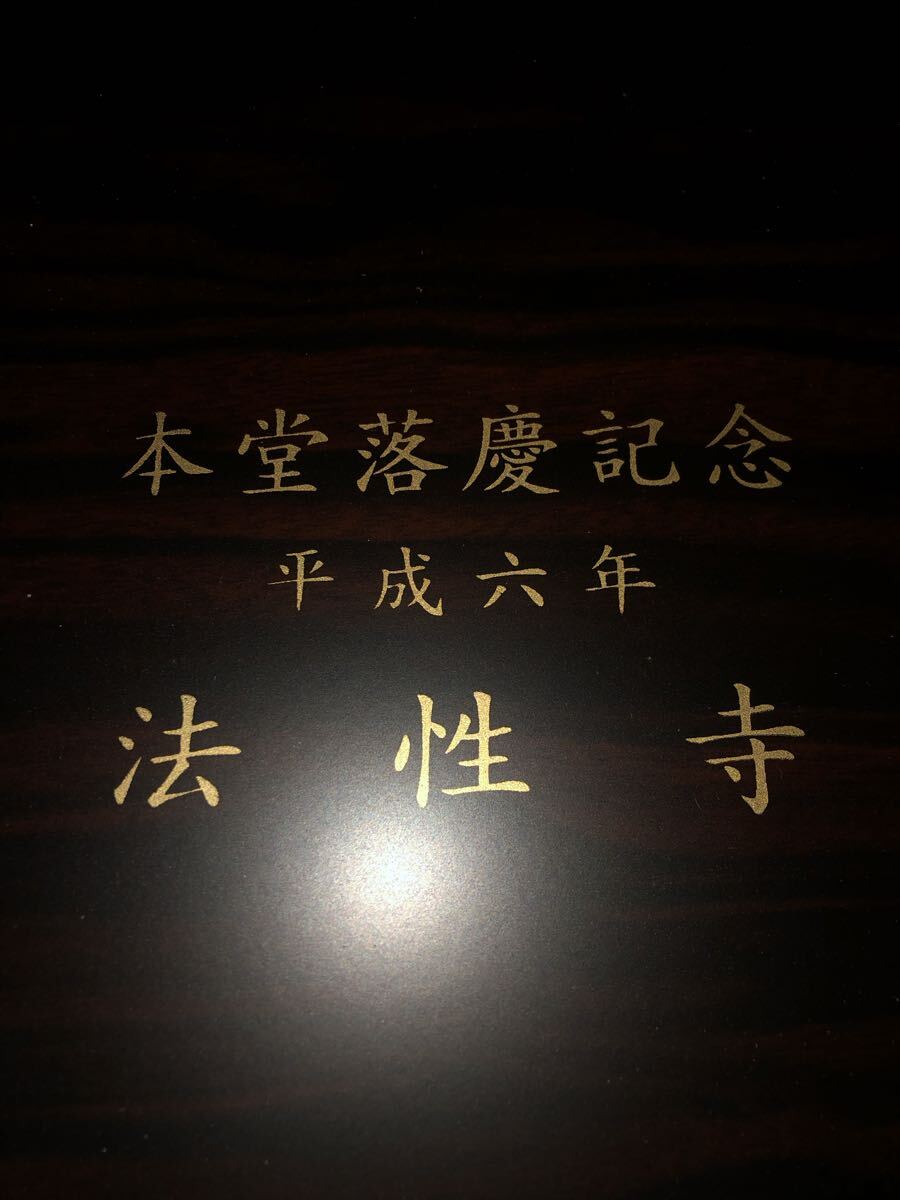 本堂落慶記念
平成六年
法性寺